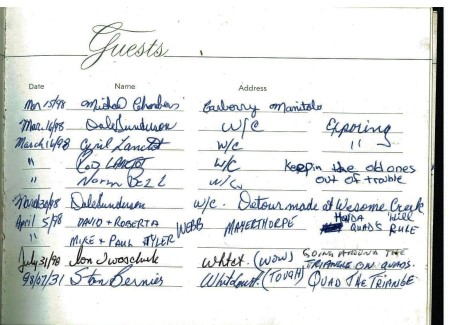 Guests
Date Name Address
Mar 15/98 Michael Chambers Carberry Manitoba
Mar. 16/98 Dale Sunderson W/C Exporing
March 16/98 Cyril W/C "
" W/C Keeppin the old ones
" Norm W/C out of trouble
Dale Sunderson W/C. Detour made at Wesome Creek
April 5/98 DAVID + ROBERTA WEBB MAYERTHORPE HONDA will
" MIKE + PAUL TYLER QUADS RULE
July 31/98 Whtct. (WOW) GOING AROUND THE
TRIANGLE ON QUADS.
98/07/31 Stan Bernier Whitecourt. (TOUGH) QUAD THE TRIANGLE